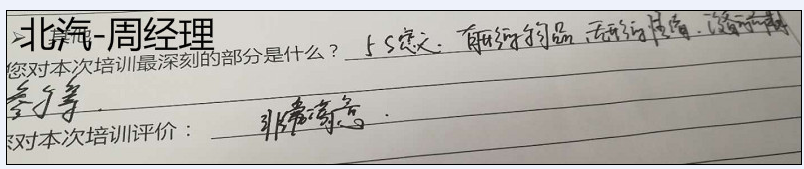 北汽-周经理
其他
您对本次培训最深刻的部分是什么？ 5S意义. 有形的物品. 无形的
参与等.
您对本次培训评价： 非常满意.